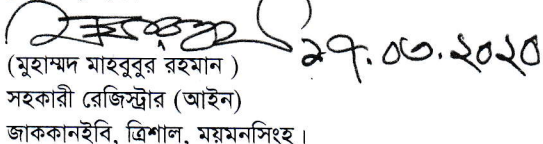 ২৭.০৩.২০২০
(মুহাম্মদ মাহবুবুর রহমান )
সহকারী রেজিস্ট্রার (আইন)
জাককানইবি, ত্রিশাল, ময়মনসিংহ।